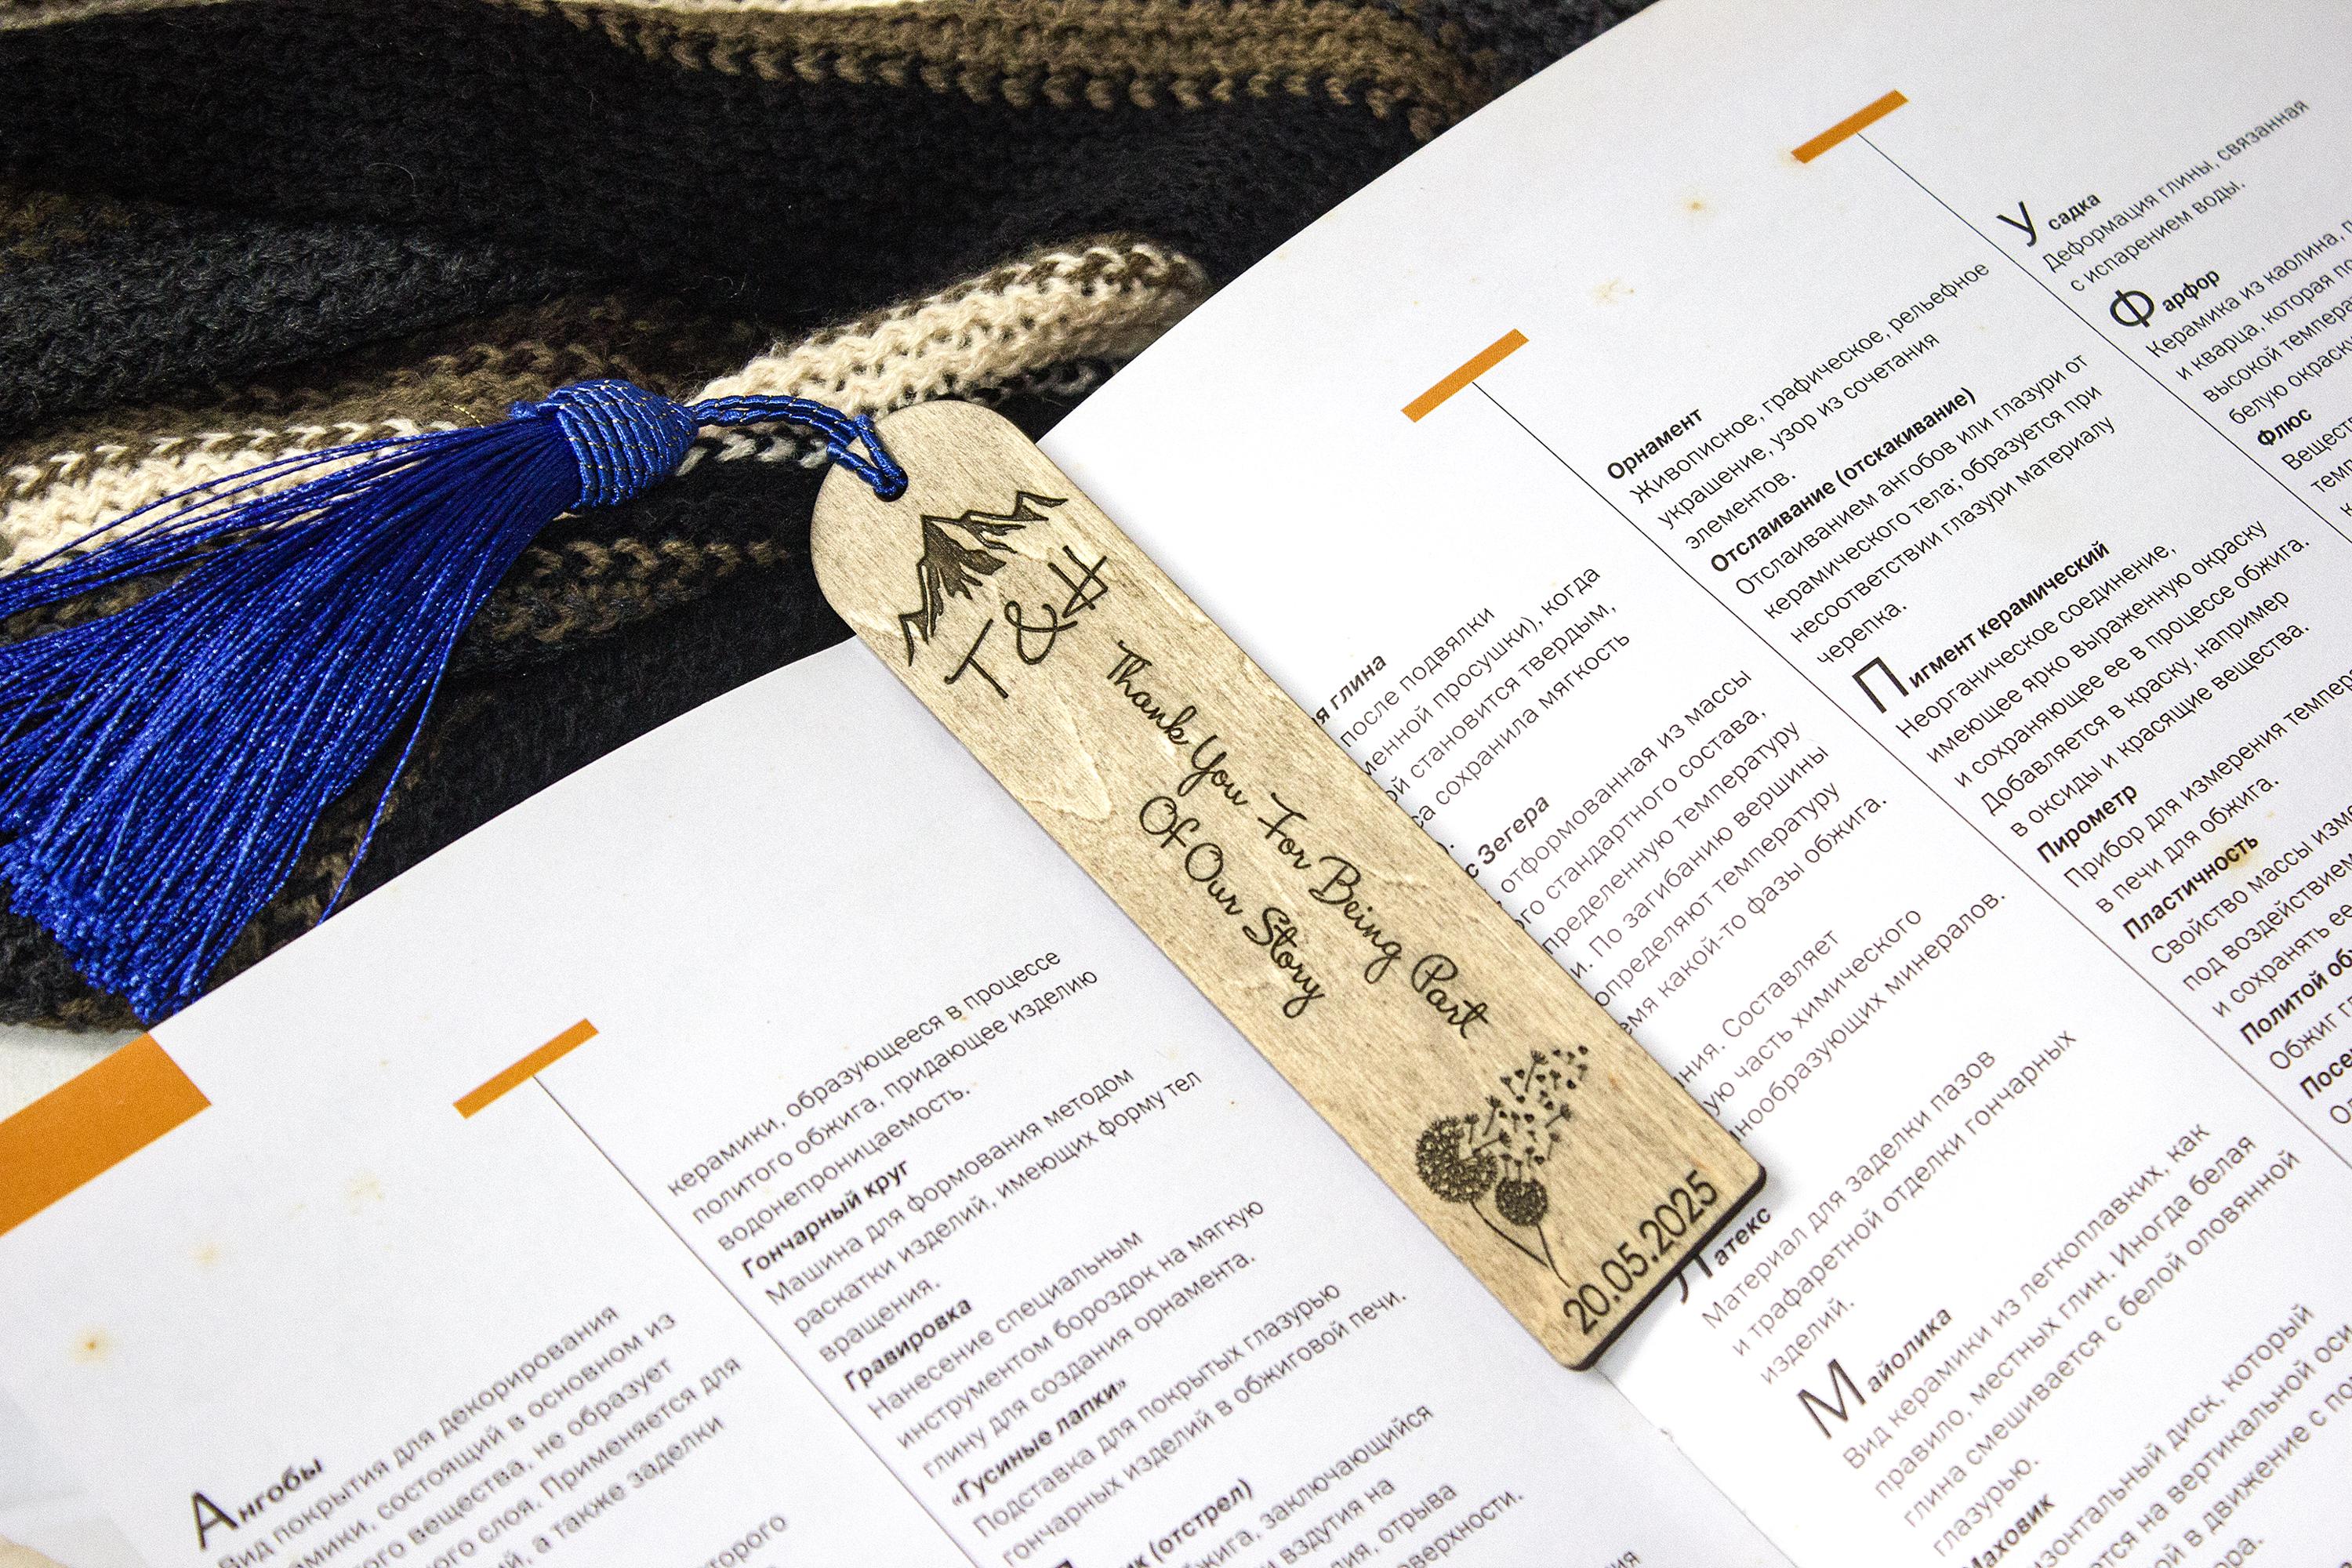 T & H
Thank You For Being Part
Of Our Story
20.05.2025
Ангобы
Вид покрытия для декорирования
состоящий в основном из
вещества, не образует
слоя. Применяется для
а также заделки
керамики, образующееся в процессе
политого обжига, придающее изделию
водонепроницаемость.
Гончарный круг
Машина для формования методом
раскатки изделий, имеющих форму тел
вращения.
Гравировка
Нанесение специальным
инструментом бороздок на мягкую
глину для создания орнамента.
«Гусиные лапки»
Подставка для покрытых глазурью
гончарных изделий в обжиговой печи.
(отстрел)
заключающийся
вздутия на
отрыва
глина
после подвялки
просушки), когда
становится твердым,
сохранила мягкость
с Зегера
отформованная из массы
стандартного состава,
определенную температуру
По загибанию вершины
определяют температуру
какой-то фазы обжига.
Составляет
часть химического
минералов.
Латекс
Материал для заделки пазов
и трафаретной отделки гончарных
изделий.
Майолика
Вид керамики из легкоплавких, как
правило, местных глин. Иногда белая
глина смешивается с белой оловянной
глазурью.
Маховик
диск, который
на вертикальной
в движение с
Орнамент
Живописное, графическое, рельефное
украшение, узор из сочетания
элементов.
Отслаивание (отскакивание)
Отслаиванием ангобов или глазури от
керамического тела; образуется при
несоответствии глазури материалу
черепка.
Пигмент керамический
Неорганическое соединение,
имеющее ярко выраженную окраску
и сохраняющее ее в процессе обжига.
Добавляется в краску, например
в оксиды и красящие вещества.
Пирометр
Прибор для измерения
в печи для обжига.
Пластичность
Свойство массы
под воздействием
и сохранять ее
Политой
Обжиг
Усадка
Деформация глины, связанная
с испарением воды.
Фарфор
Керамика из каолина,
и кварца, которая
высокой
белую
Флюс